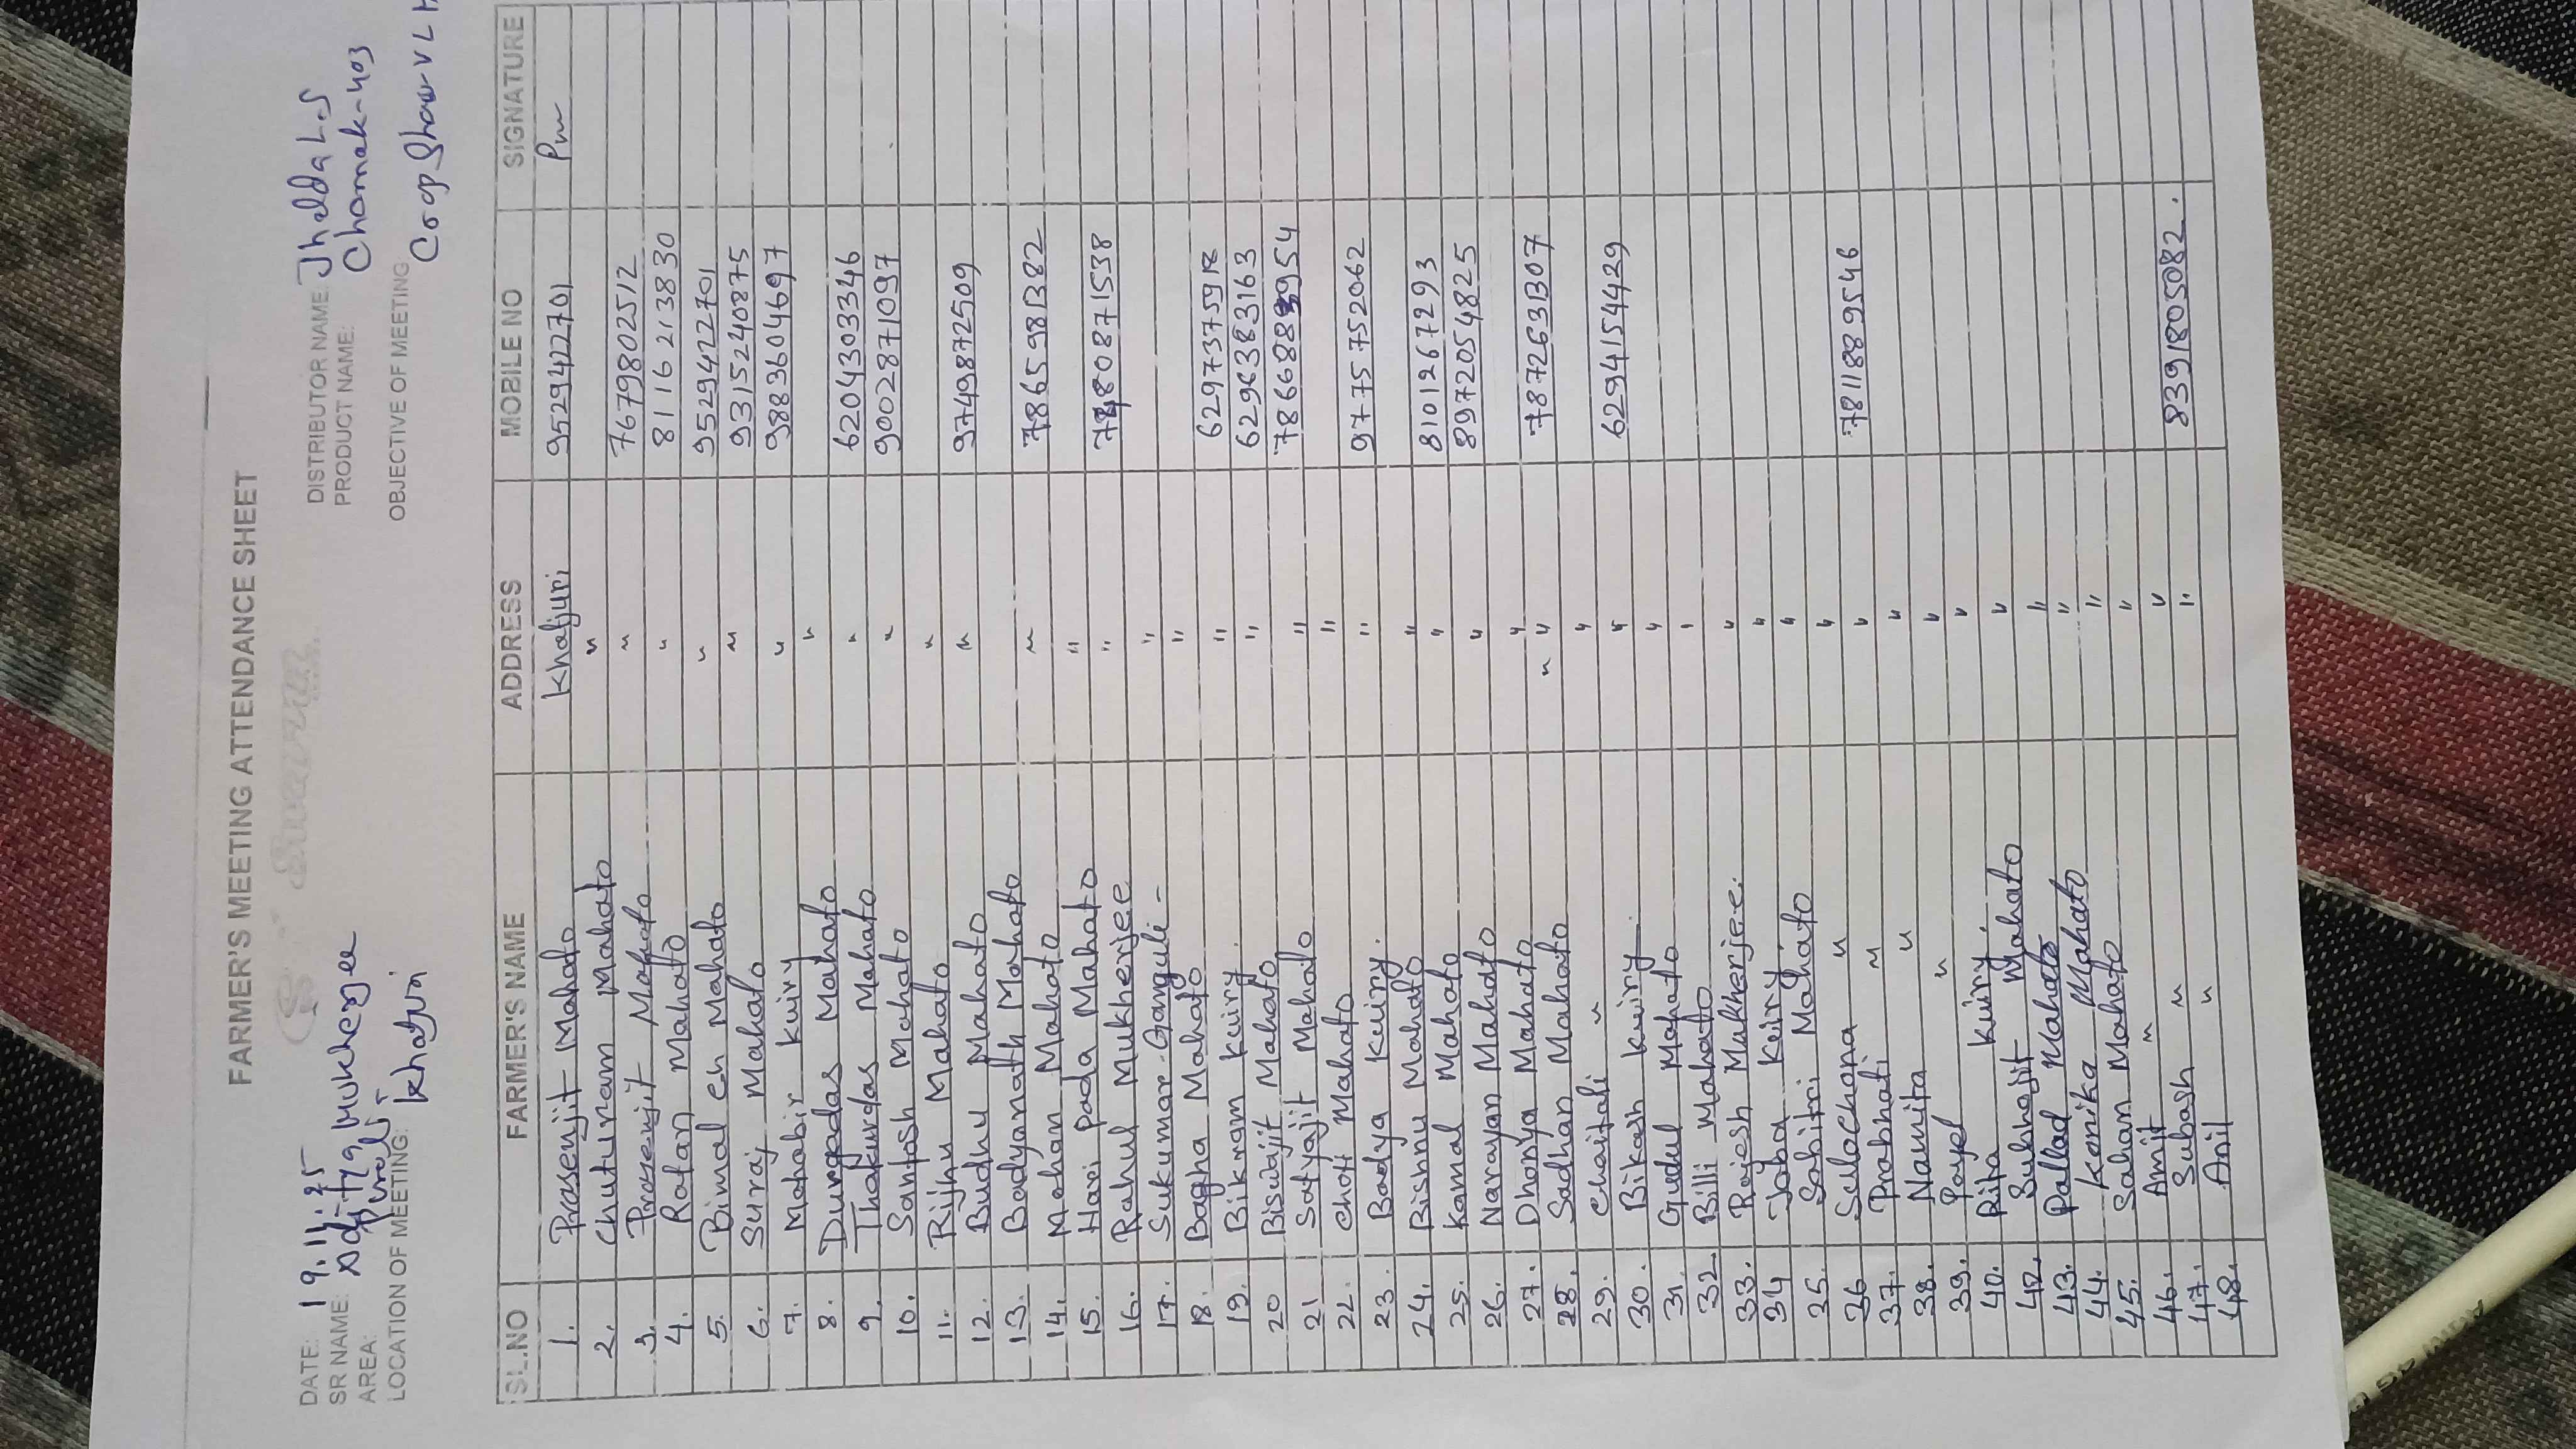 FARMER'S MEETING ATTENDANCE SHEET
DATE: 19.11.25
SR NAME: Aditya Mukherjee
AREA:
LOCATION OF MEETING: Khatjuri
DISTRIBUTOR NAME: Jhalda L.S
PRODUCT NAME: Chamak-403
OBJECTIVE OF MEETING
Crop Show
SL.NO FARMER'S NAME ADDRESS MOBILE NO SIGNATURE
1. Prasenjit Mahato Khatjuri 9529422701
2. Chuturam Mahato "
3. Prosenjit Mahato " 7679802512
4. Ratan Mahato " 8116213830
5. Bimal ch Mahato " 9529422701
6. Suraj Mahato " 9315240875
7. Mahabir Kuiry " 9883604697
8. Durgadas Mahato "
9. Thakurdas Mahato " 6204303346
10. Santosh Mahato " 9002871097
11. Rijhu Mahato "
12. Budhu Mahato " 9749872509
13. Badyanath Mahato "
14. Mohan Mahato "
15. Hari pada Mahato "
16. Rahul Mukherjee "
17. Sukumar Ganguli -
18. Bagha Mahato "
19. Bikram Kuiry. " 6296383163
20 Biswajit Mahato
21 Satyajit Mahato "
22. Choti Mahato "
23. Badya Kuiry. " 9775752062
24. Bishnu Mahato "
25. Kamal Mahato " 8101267293
26. Narayan Mahato " 8972054825
27. Dhonya Mahato "
28. Sadhan Mahato "
29. Chaitali " "
30. Bikash Kuiry. " 6294154429
31. Gudul Mahato "
32. Billi Mahato
33. Rajesh Mukherjee. "
34 Joba Keiry "
35. Sabitri Mahato "
36 Sulochona " "
37. Probhati " " 7811889546
38. Namita " "
39. Payel " "
40. Rita Kuiry. "
42. Subhajit Mahato "
43. Pallad Mahato "
44. Konika Mahato "
45. Sahan Mahato "
46. Amit " "
47. Subash " " 8391805082.
48. Anil " "